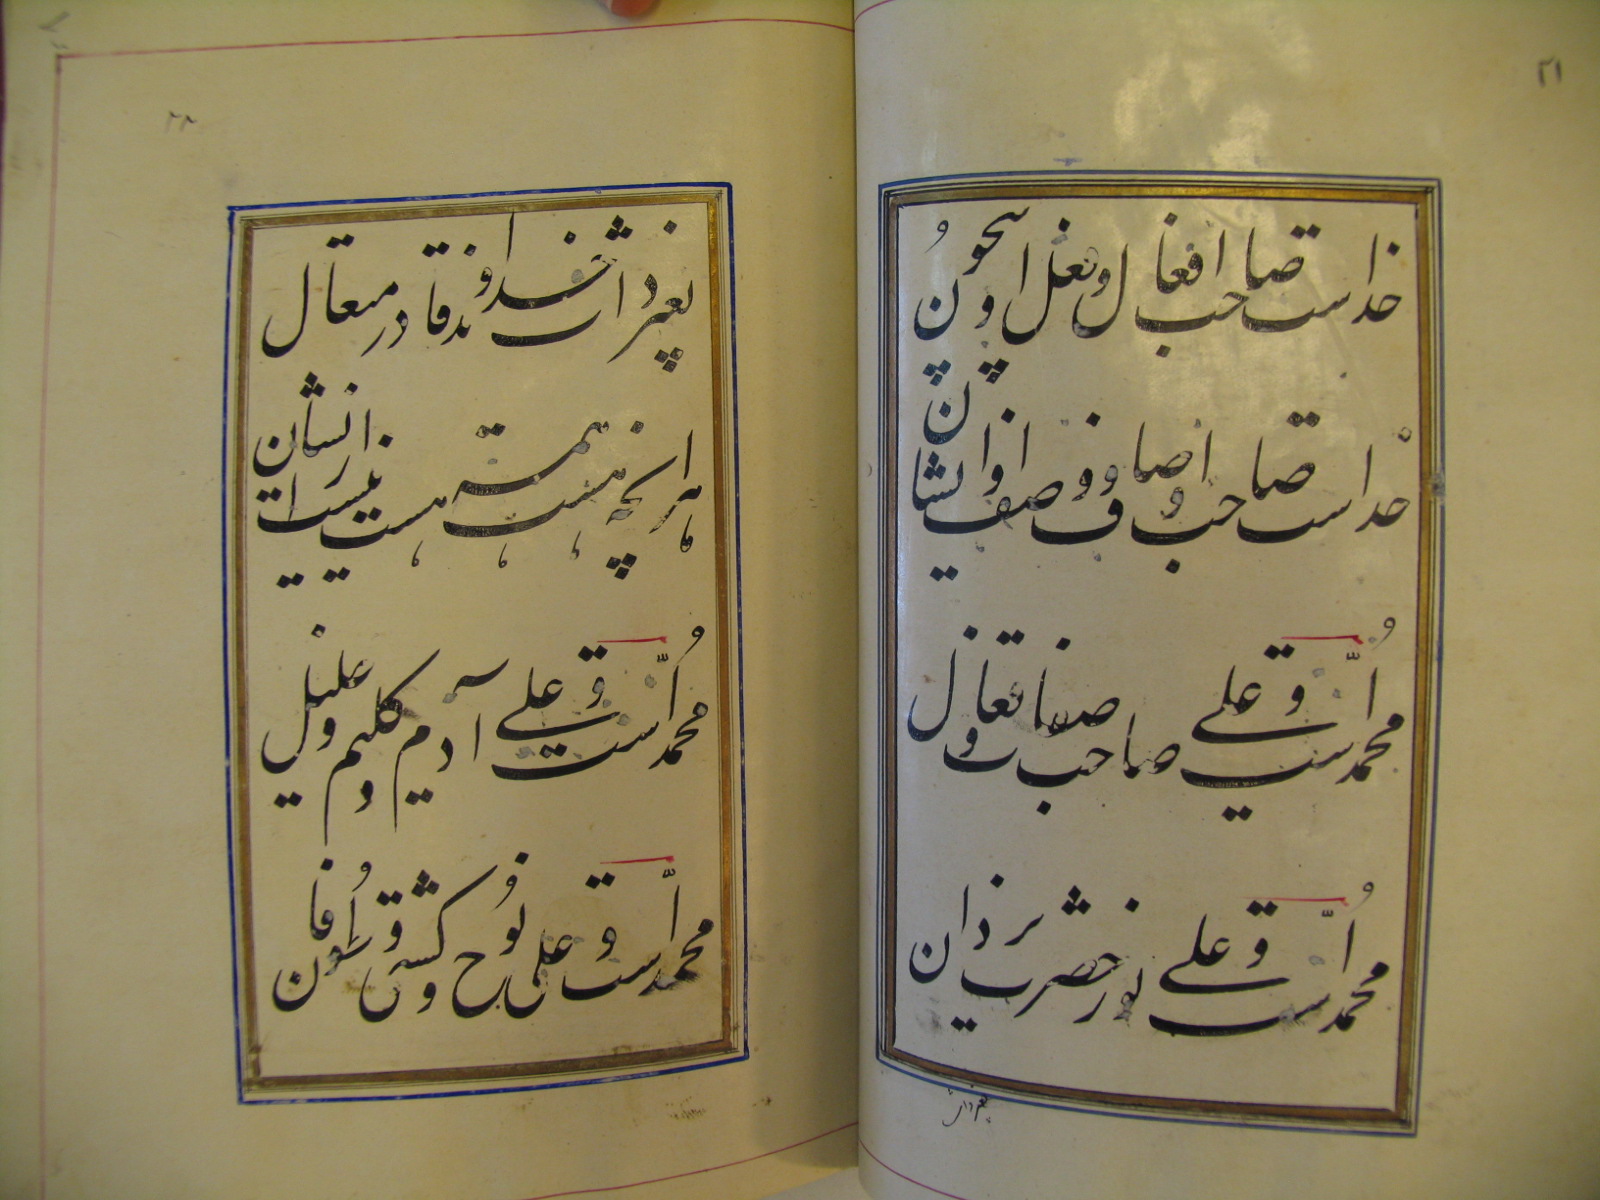 ۲۱
خداست صاحب افعال و فعل او بیچون
خداست صاحب اوصاف و وصف او ایشان
محمد است و علی صاحب صفا و تعال
محمد است و علی نور حضرت یزدان
۲۲
بغیر ذات خداوند قادر متعال
هر آنچه هست همه هست نیست از ایشان
محمد است و علی آدم و کلیم و خلیل
محمد است و علی نوح و کشتی و طوفان